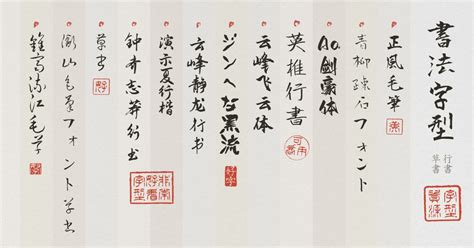 書法字型
行書
草書
正風毛筆
青柳疎石フォント
Aa剑豪体
英椎行書
云峰飞云体
ジンへな黒流
好字
云峰静龙行书
演示夏行楷
钟齐志莽行书
非常好看字型
衡山毛筆フォント草書
流江毛草